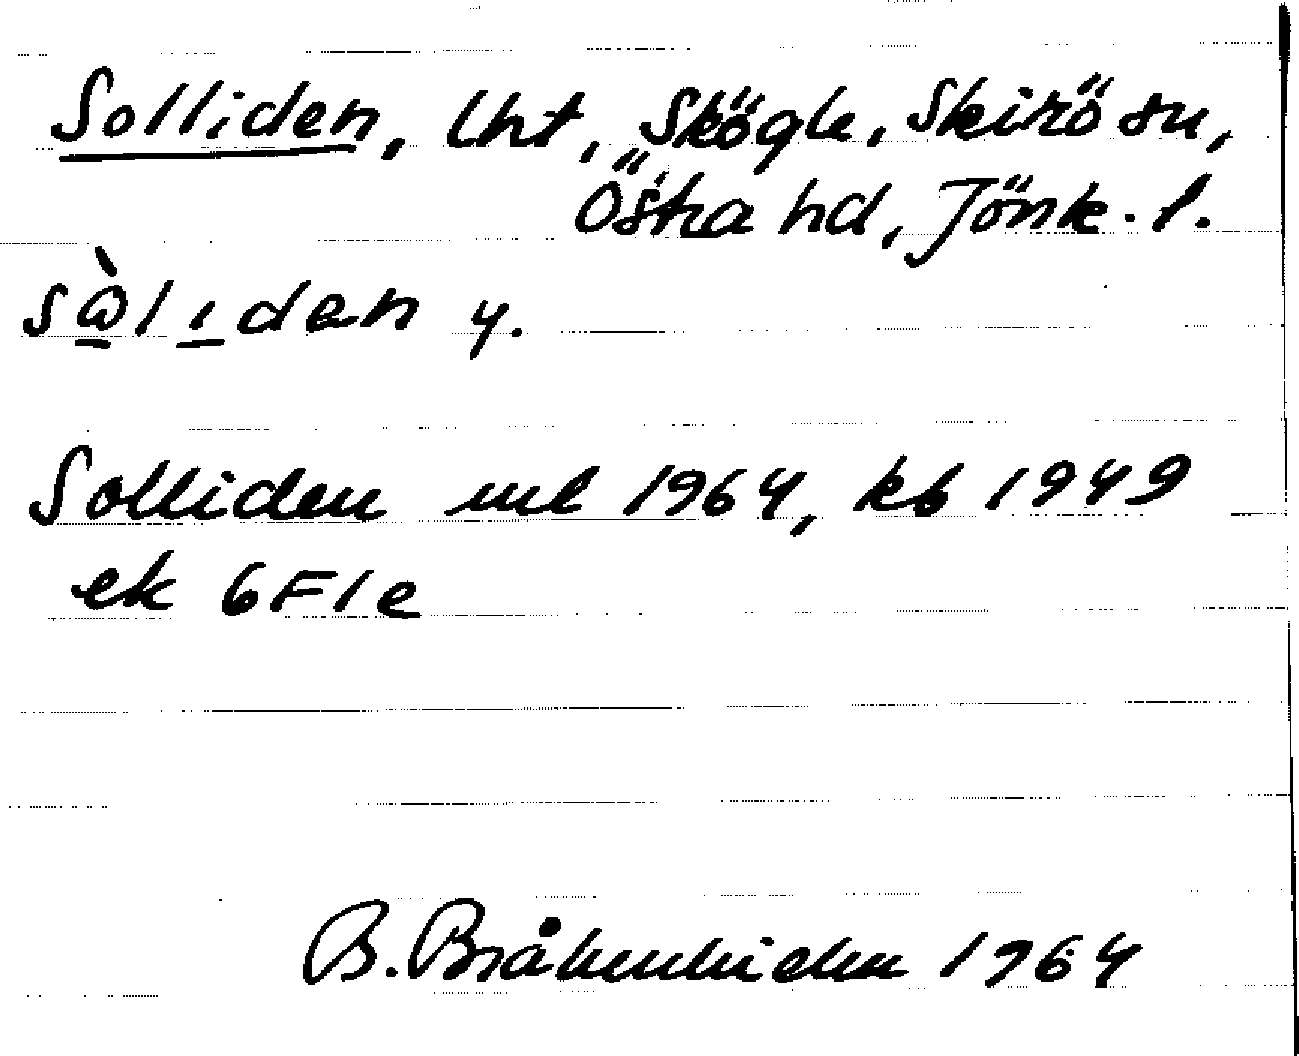 Solliden, lht, Skögle, Skirö sn,
Östra hd, Jönk. l.
sὼlıden y.
Solliden ml 1964, kb 1949
ek 6F1e
B. 1964